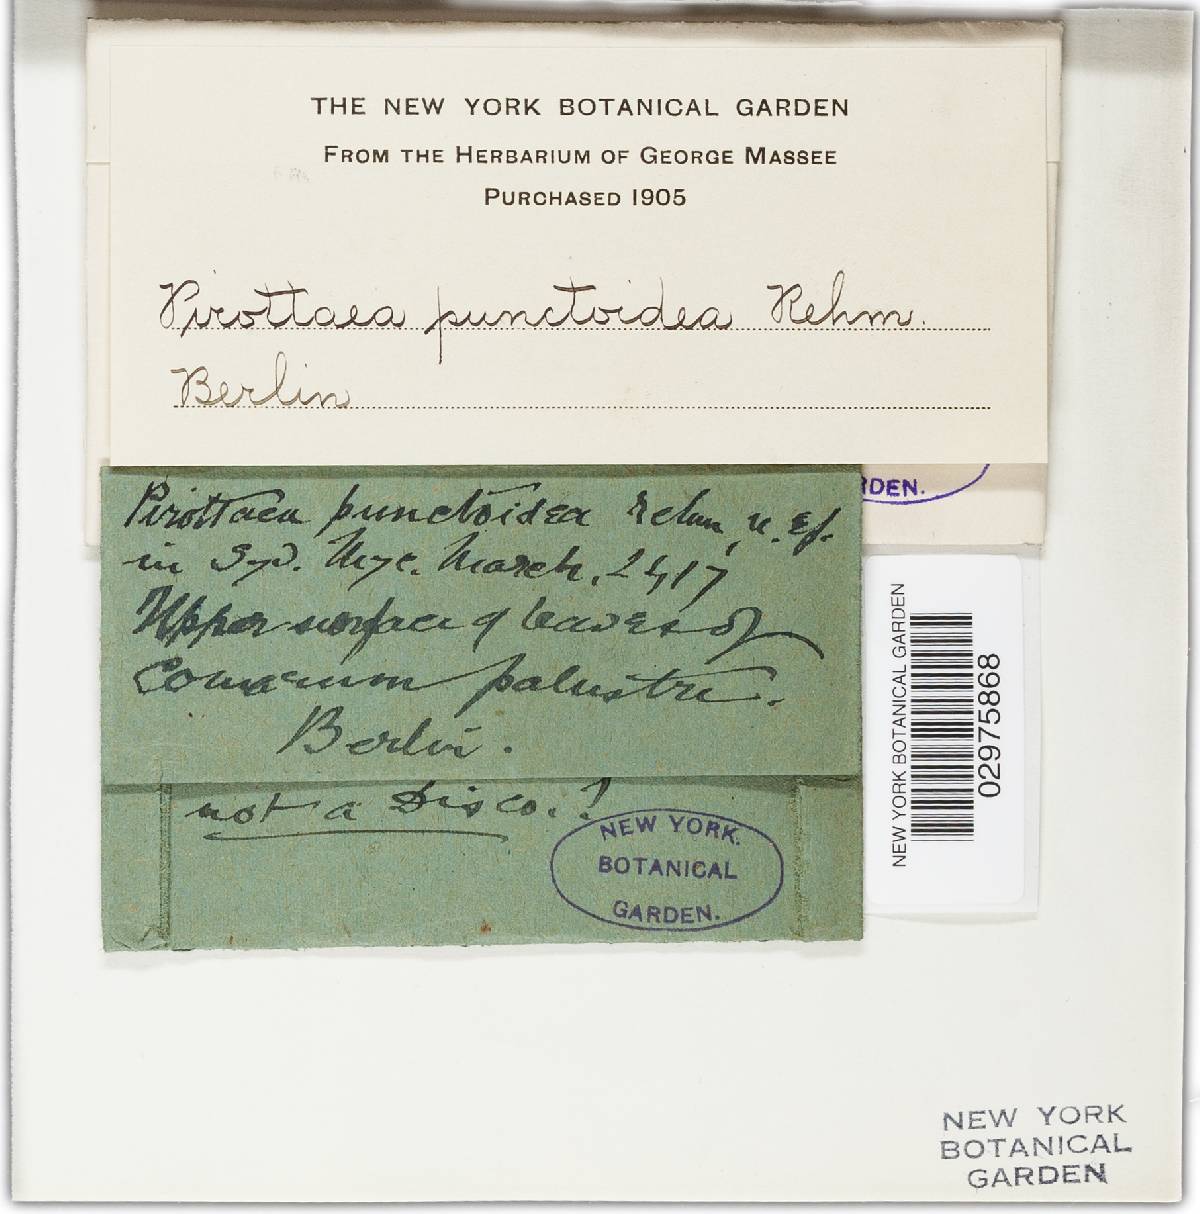 THE NEW YORK BOTANICAL GARDEN
FROM THE HERBARIUM OF GEORGE MASSEE
PURCHASED 1905
Pirottaea punctoidea Rehm.
Berlin
RDEN.
Pirottaea punctoidea Rehm, n.
in Syd. Myc. March. 2417
Upper surface of leaves of
Comarum palustre.
Berlin.
not a Disco.!
NEW YORK.
BOTANICAL
GARDEN.
NEW YORK BOTANICAL GARDEN
02975868
NEW YORK
BOTANICAL
GARDEN